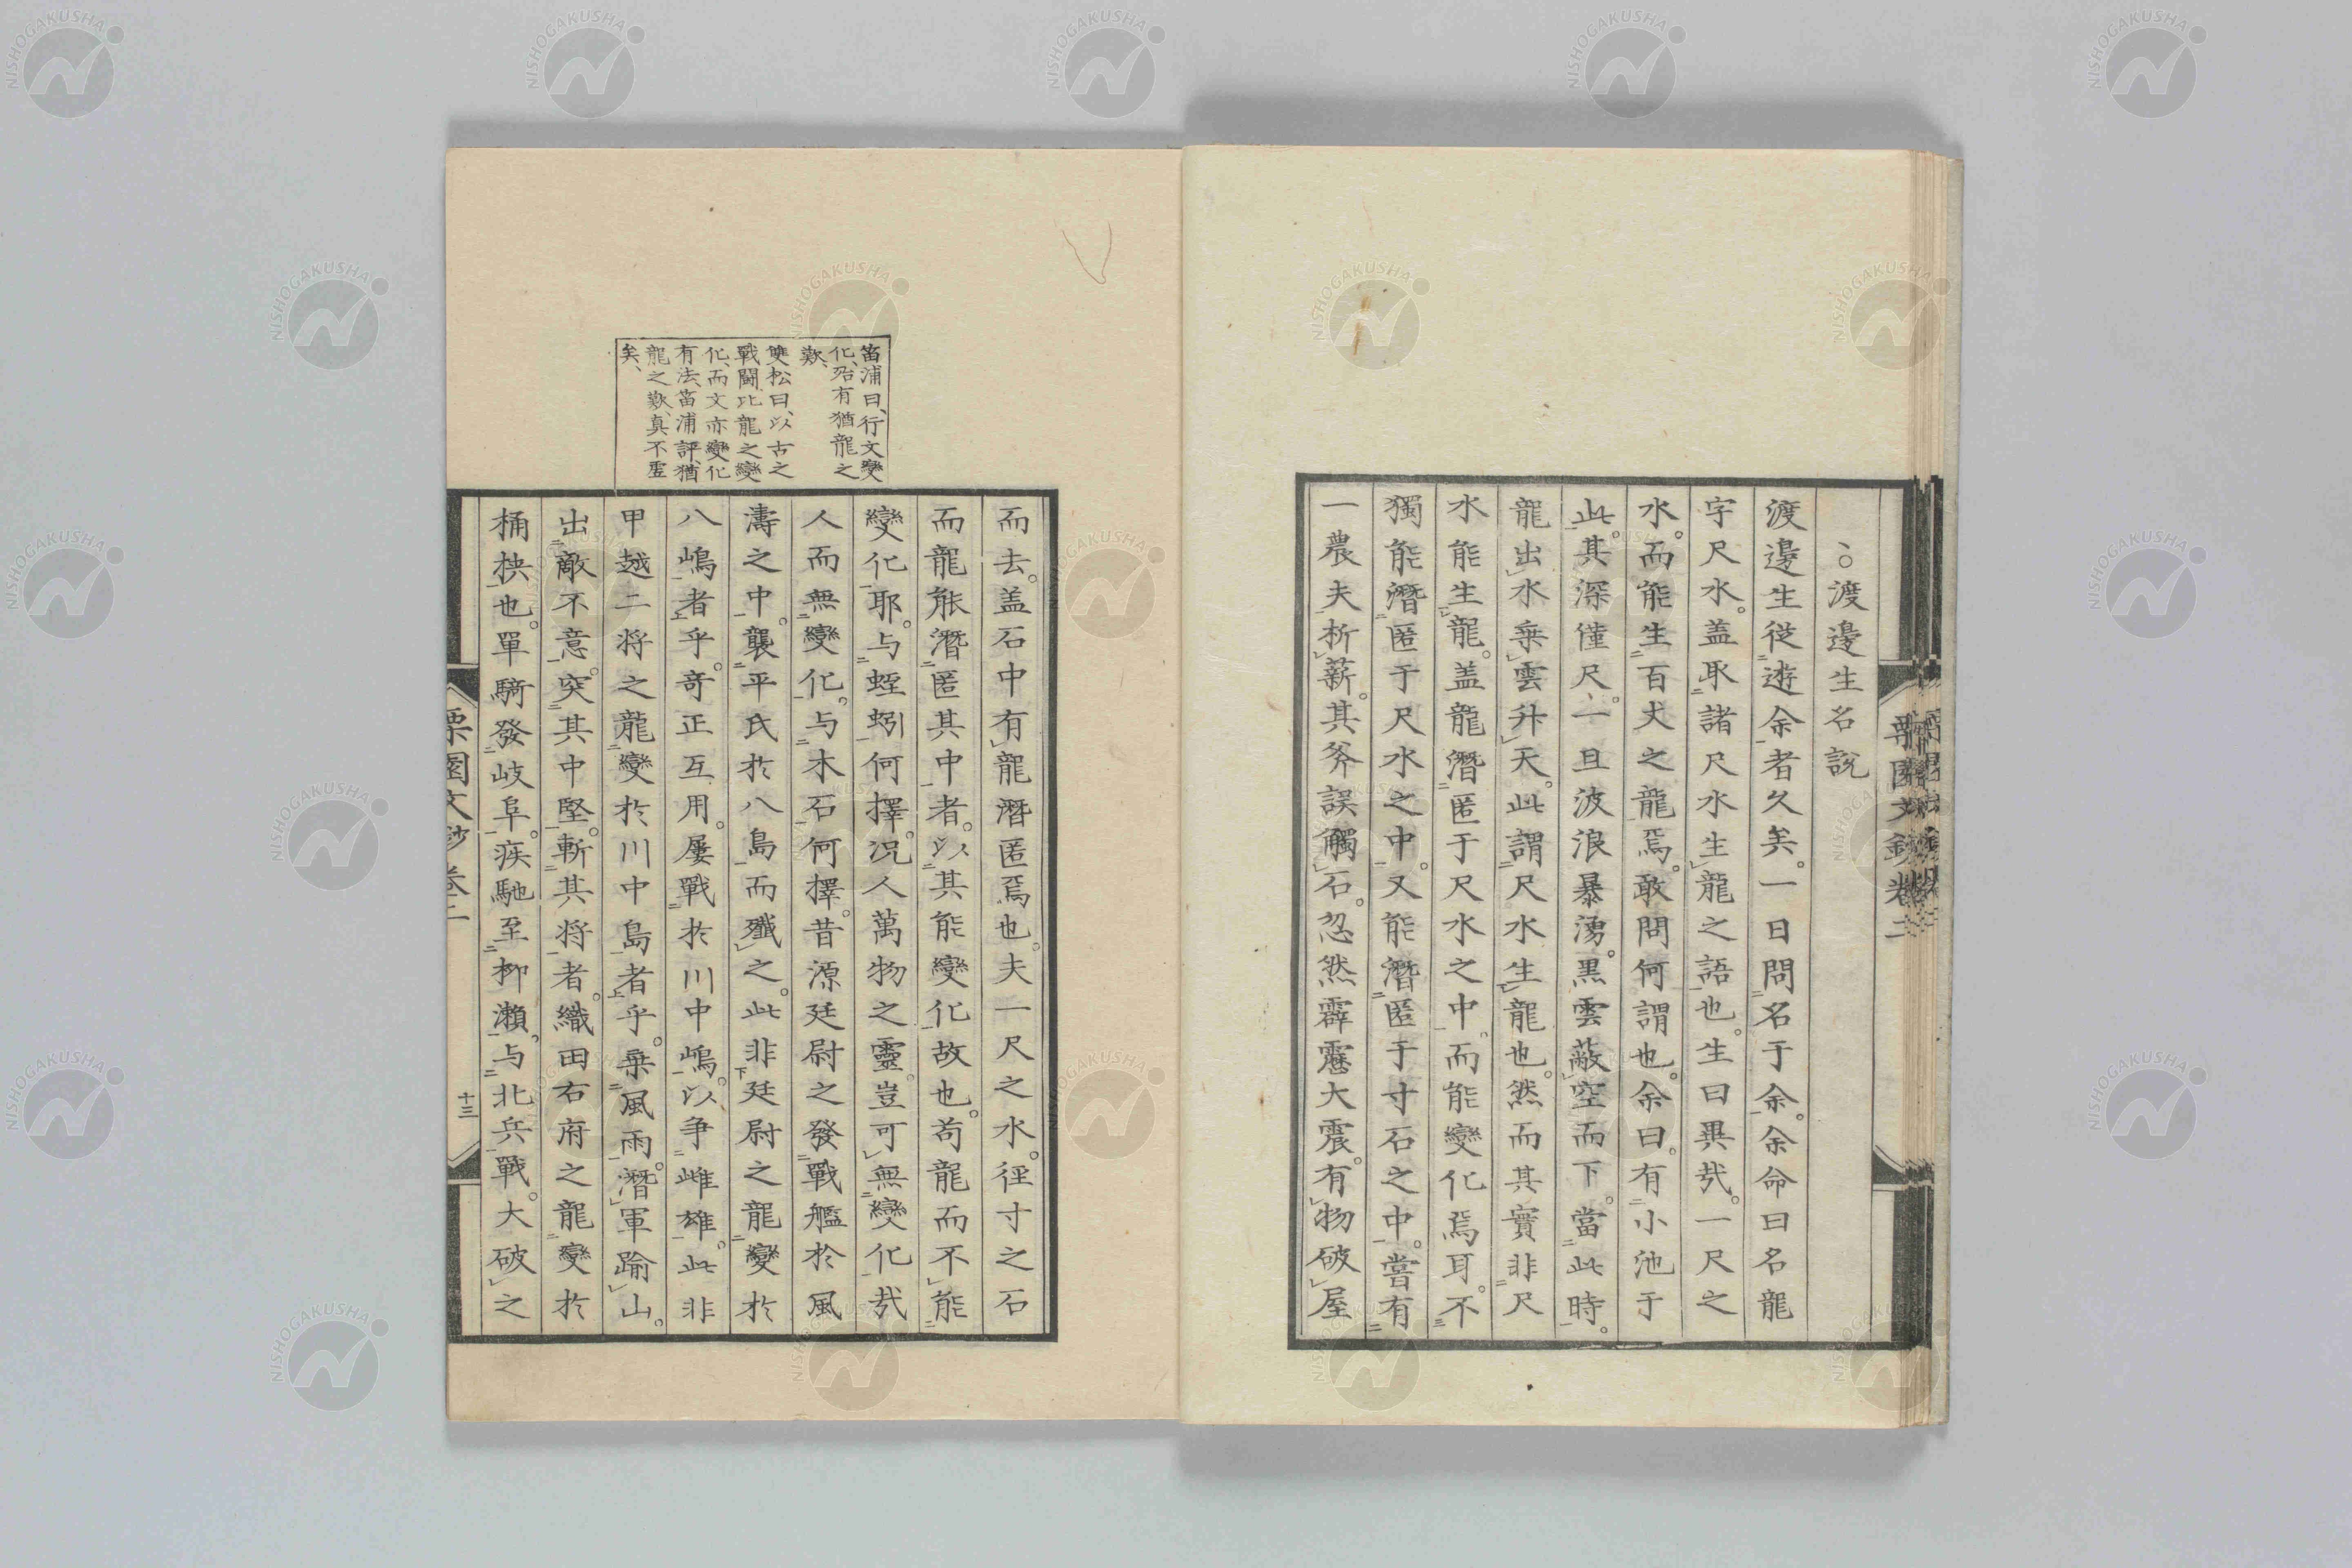 渡邊生名説
渡邊生從遊余者久矣。一日問名于余。余命曰名龍
字尺水。蓋取諸尺水生龍之語也。生曰異哉。一尺之
水。而能生百丈之龍焉。敢問何謂也。余曰。有小池于
此。其深僅尺。一旦波浪暴湧。黒雲蔽空而下。當此時。
龍出水乗雲升天。此謂尺水生龍也。然而其實非尺
水能生龍。蓋龍潛匿于尺水之中。而能變化焉耳。不
獨能潛匿于尺水之中。又能潛匿于寸石之中。嘗有
一農夫析薪。其斧誤觸石。忽然霹靂大震。有物破屋
而去。蓋石中有龍潛匿焉也。夫一尺之水。徑寸之石
而龍能潛匿其中者。以其能變化故也。苟龍而不能
變化耶。与蛭蚓何擇。况人萬物之靈。豈可無變化哉
人而無變化。与木石何擇。昔源廷尉之發戰艦於風
濤之中。襲平氏於八島而殲之。此非廷尉之龍變於
八嶋者乎。奇正互用。屢戰於川中嶋。以争雌雄。此非
甲越二将之龍變於川中島者乎。乗風雨。潛軍踰山。
出敵不意。突其中堅。斬其将者。織田右府之龍變於
桶柍也。單騎發岐阜。疾馳至柳瀬。与北兵戰。大破之
笛浦曰、行文變
化、殆有猶龍之
歎、
雙松曰、以古之
戰鬪、比龍之變
化、而文亦變化
有法、笛浦評、猶
龍之歎、真不虚
矣、
栗園文鈔卷二
十三
栗園文鈔卷二
NISHOGAKUSHA